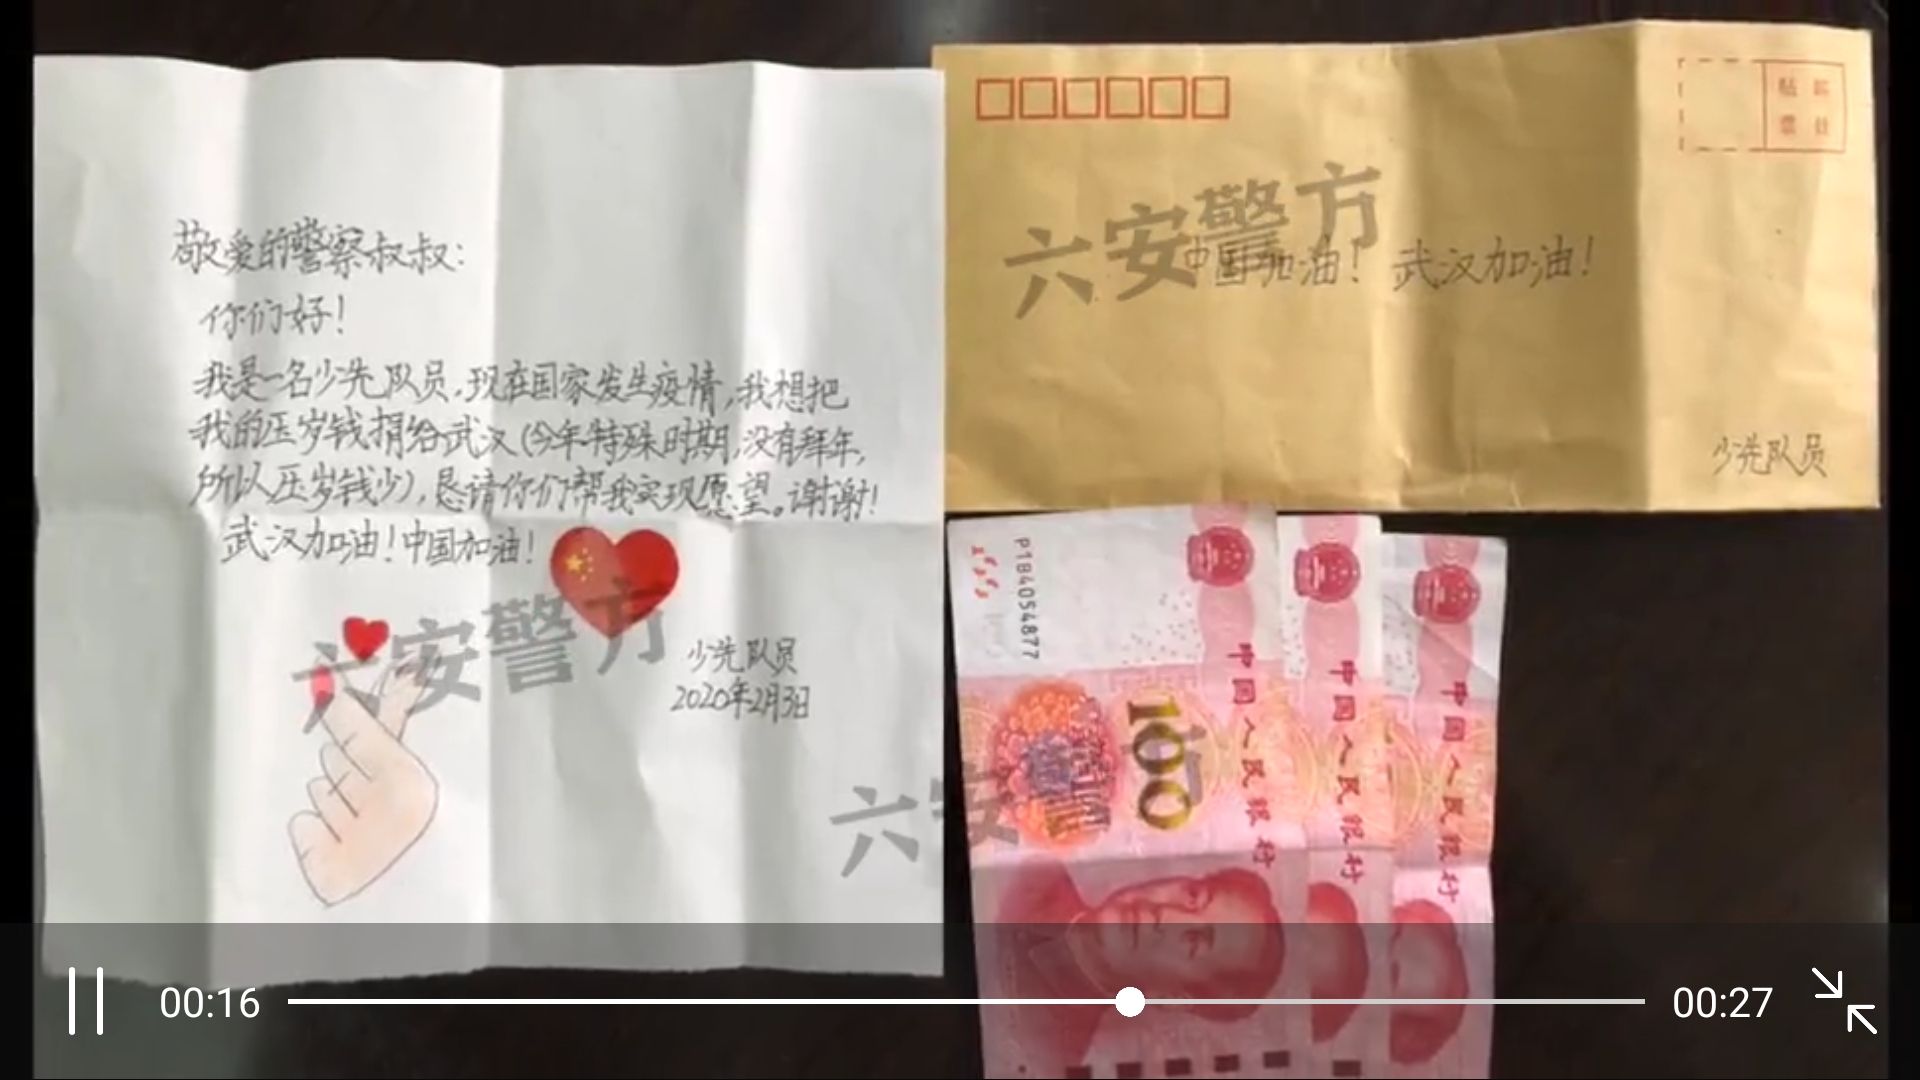 敬爱的警察叔叔:
你们好!
我是一名少先队员,现在国家发生疫情,我想把
我的压岁钱捐给武汉(今年特殊时期,没有拜年,
所以压岁钱少),恳请你们帮我实现愿望。谢谢!
武汉加油!中国加油!
少先队员
2020年2月3日
六安警方
六安
贴邮
票处
六安警方
中国加油! 武汉加油!
少先队员
P184054877
100
中国人民银行
中国人民银行
中国人民银行
00:16
00:27